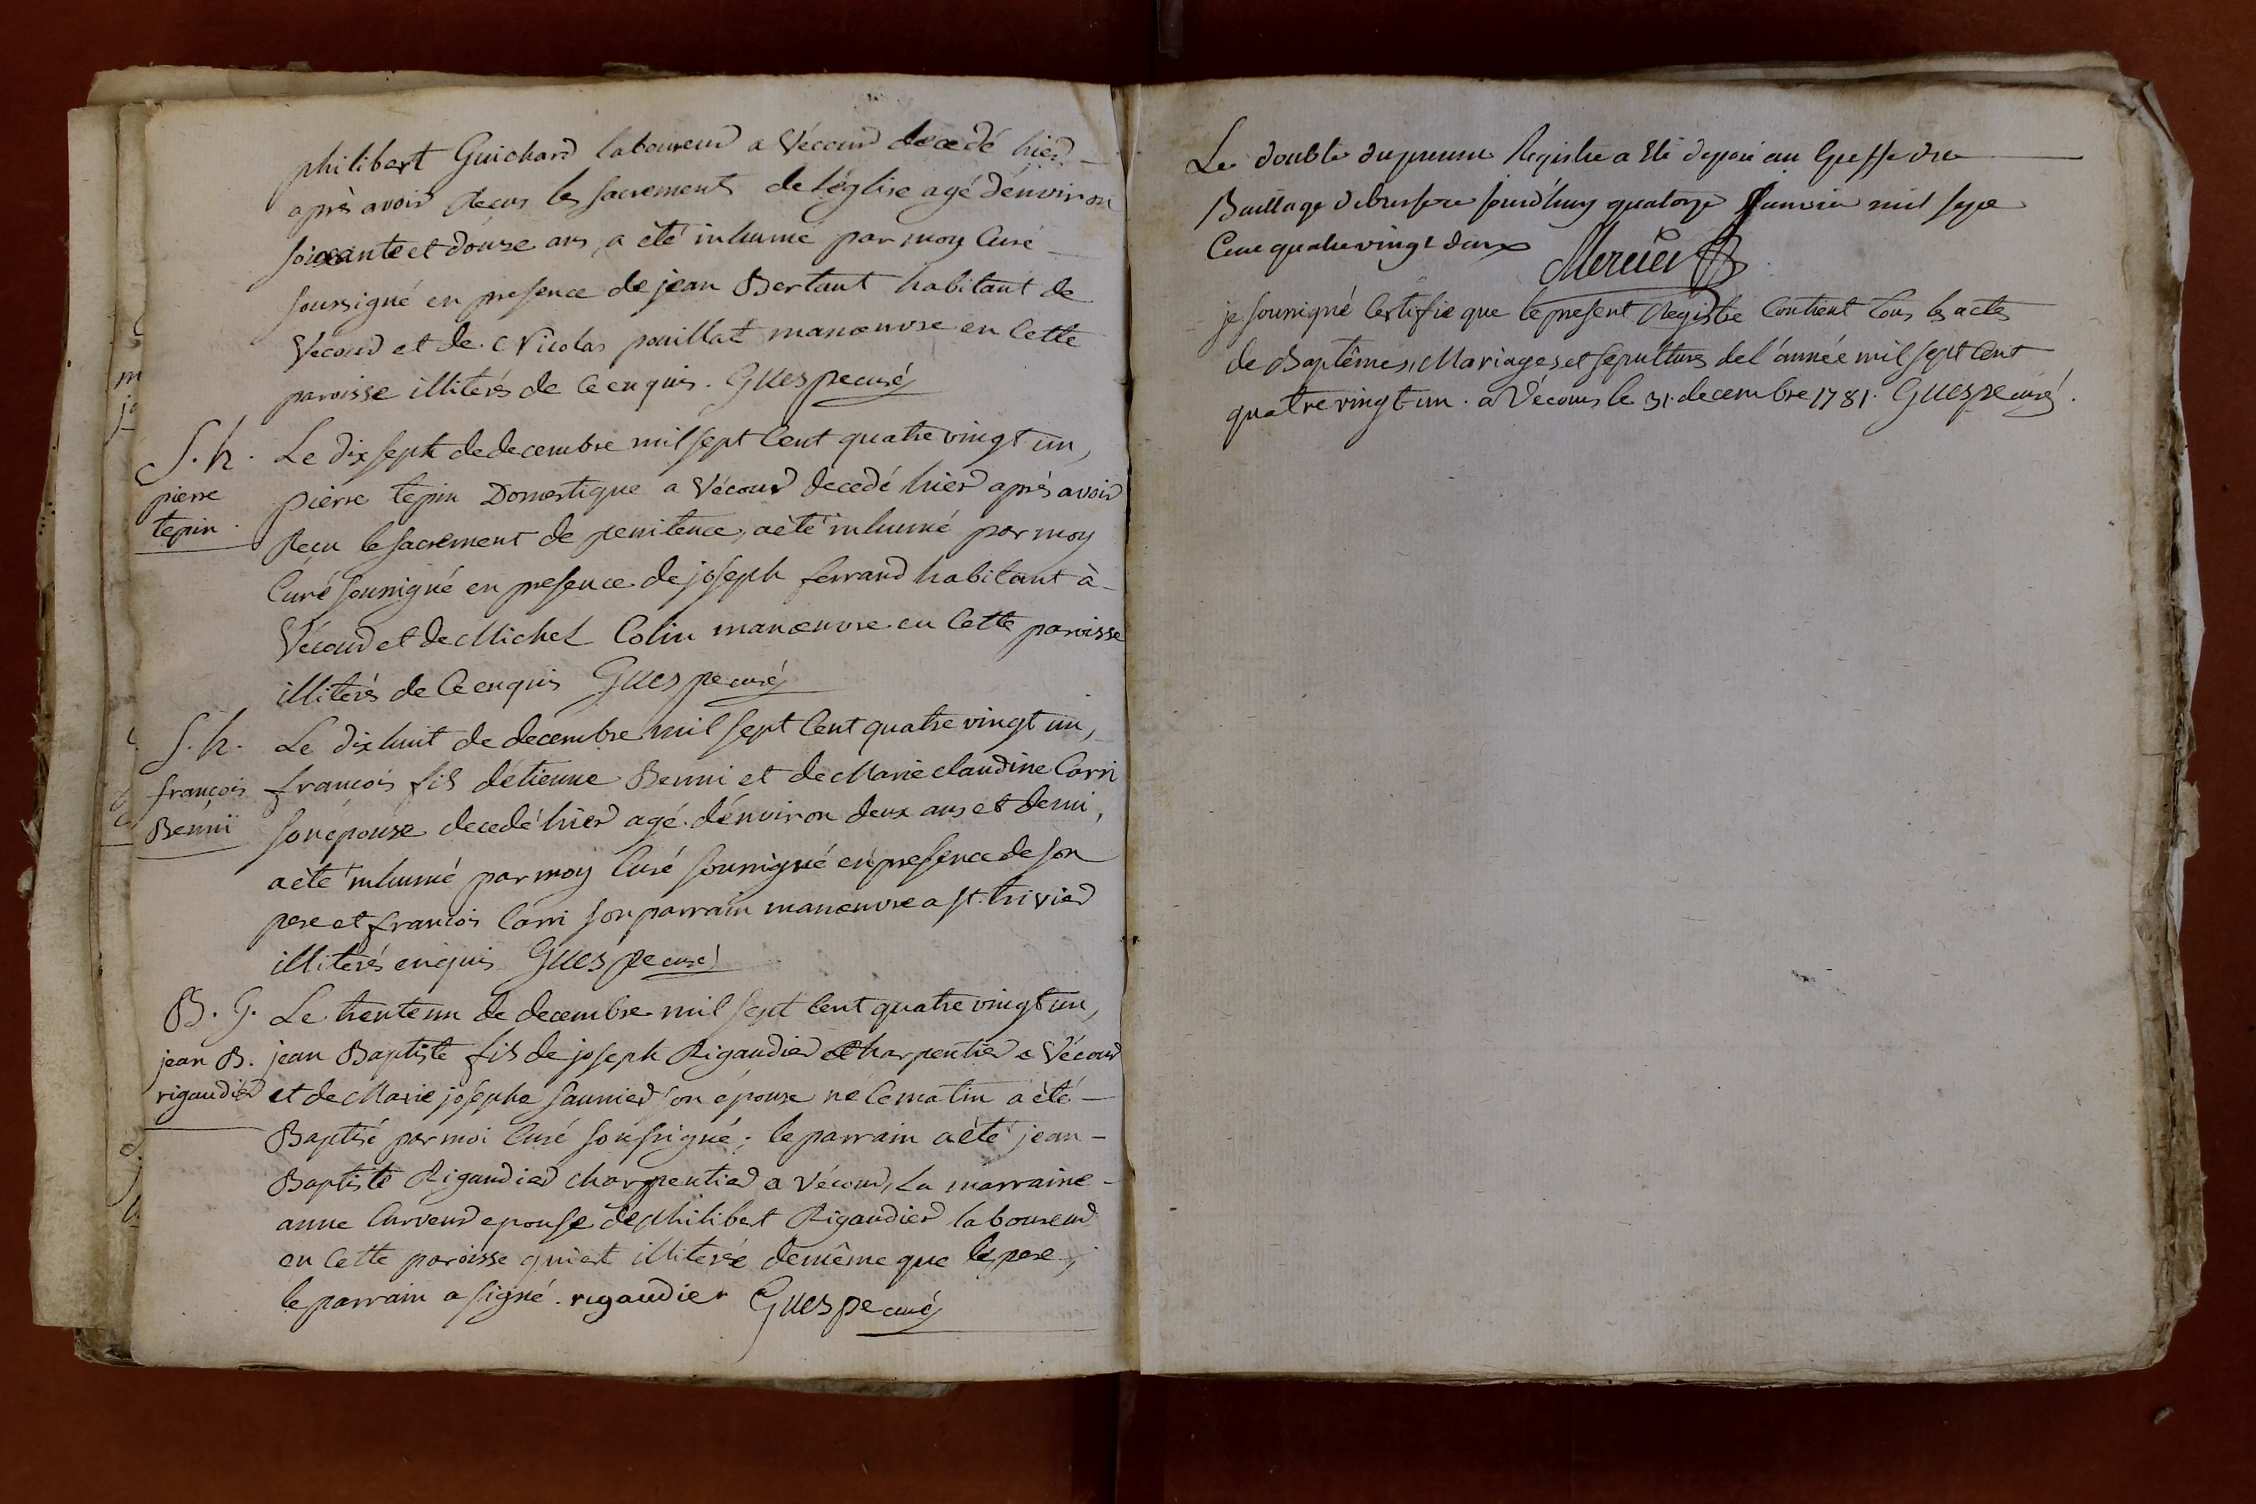 philibert Guichard laboureur a Vécour decedé hier
après avoir recus les sacrements de l'église agé d'environ
soixante et douze ans, a èté inhumé par moy Curé
soussigné en presence de jean Bertaut habitant de
Vecour et de Nicolas pouillat manœuvre en Cette
paroisse illiterés de Ce enquis. Guespe curé
S. h. Le dix sept de decembre mil sept Cent quatre vingt un,
pierre pierre tepin Domestique a Vécour decedé hier après avoir
tepin. Recu le sacrement de penitence, a èté inhumé par moy
Curé soussigné en presence de joseph ferrand habitant à
Vécour et de Michel Colin manœuvre en Cette paroisse
illiterés de Ce enquis Guespe curé
S. h. Le dix huit de decembre mil sept Cent quatre vingt un,
françois françois fils d'étienne Benni et de Marie claudine Carri
Benni son épouse decedé hier agé d'environ deux ans et demi,
a èté inhumé par moy Curé soussigné en presence de son
pere et francois Carri son parrain manœuvre a st. trivier
illiterés enquis Guespe curé
B. G. Le trente un de decembre mil sept Cent quatre vingt un,
jean B. jean Baptiste fils de joseph Rigaudier charpentier a Vécour
rigaudier et de Marie josephe saunier son épouse né Ce matin a èté
Baptisé par moi Curé soussigné; le parrain a èté jean-
Baptiste Rigaudier charpentier a Vécour, La marraine
anne Curveur epouse de philibert Rigaudier laboureur
en Cette paroisse qui est illiterée de même que le pere,
le parrain a signé. rigaudier Guespe curé
Le double du present Registre a Eté deposé au Greffe du
Baillage de bresse jourd'huy quatorze janvier mil sept
Cent quatre vingt deux Mercier
je soussigné Certifie que le present Registre Contient tous les actes
de Baptêmes, Mariages et sepultures de l'année mil sept Cent
quatre vingt-un. a Vécour le 31. decembre 1781. Guespe curé.